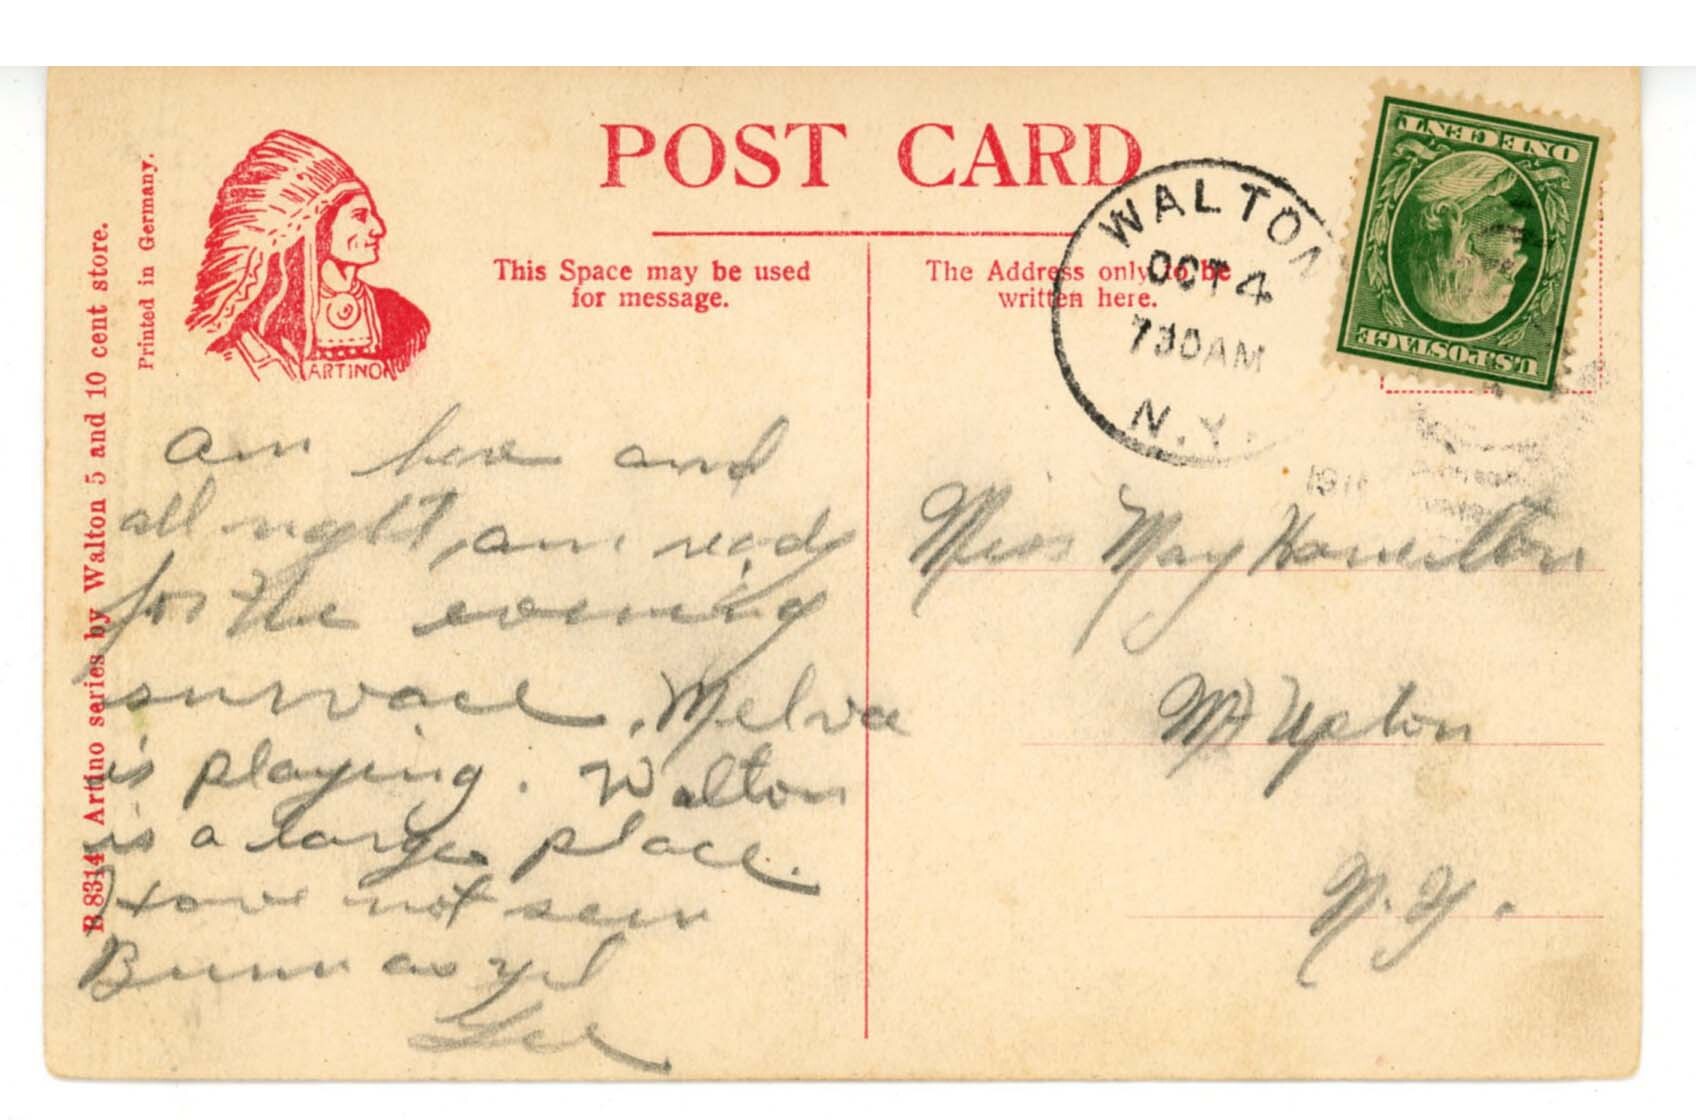 POST CARD
Printed in Germany.
B 8314 Artino series by Walton 5 and 10 cent store.
ARTINO
This Space may be used
for message.
The Address only to be
written here.
WALTON
OCT 4
730AM
N.Y.
ONE CENT
U.S.POSTAGE
am here and
all right, am ready
for the evening
survace. Melva
is playing. Walton
is a large place.
Have not seen
Bunn as yet
Lee
Miss May Hamilton
Mt Upton
N.Y.